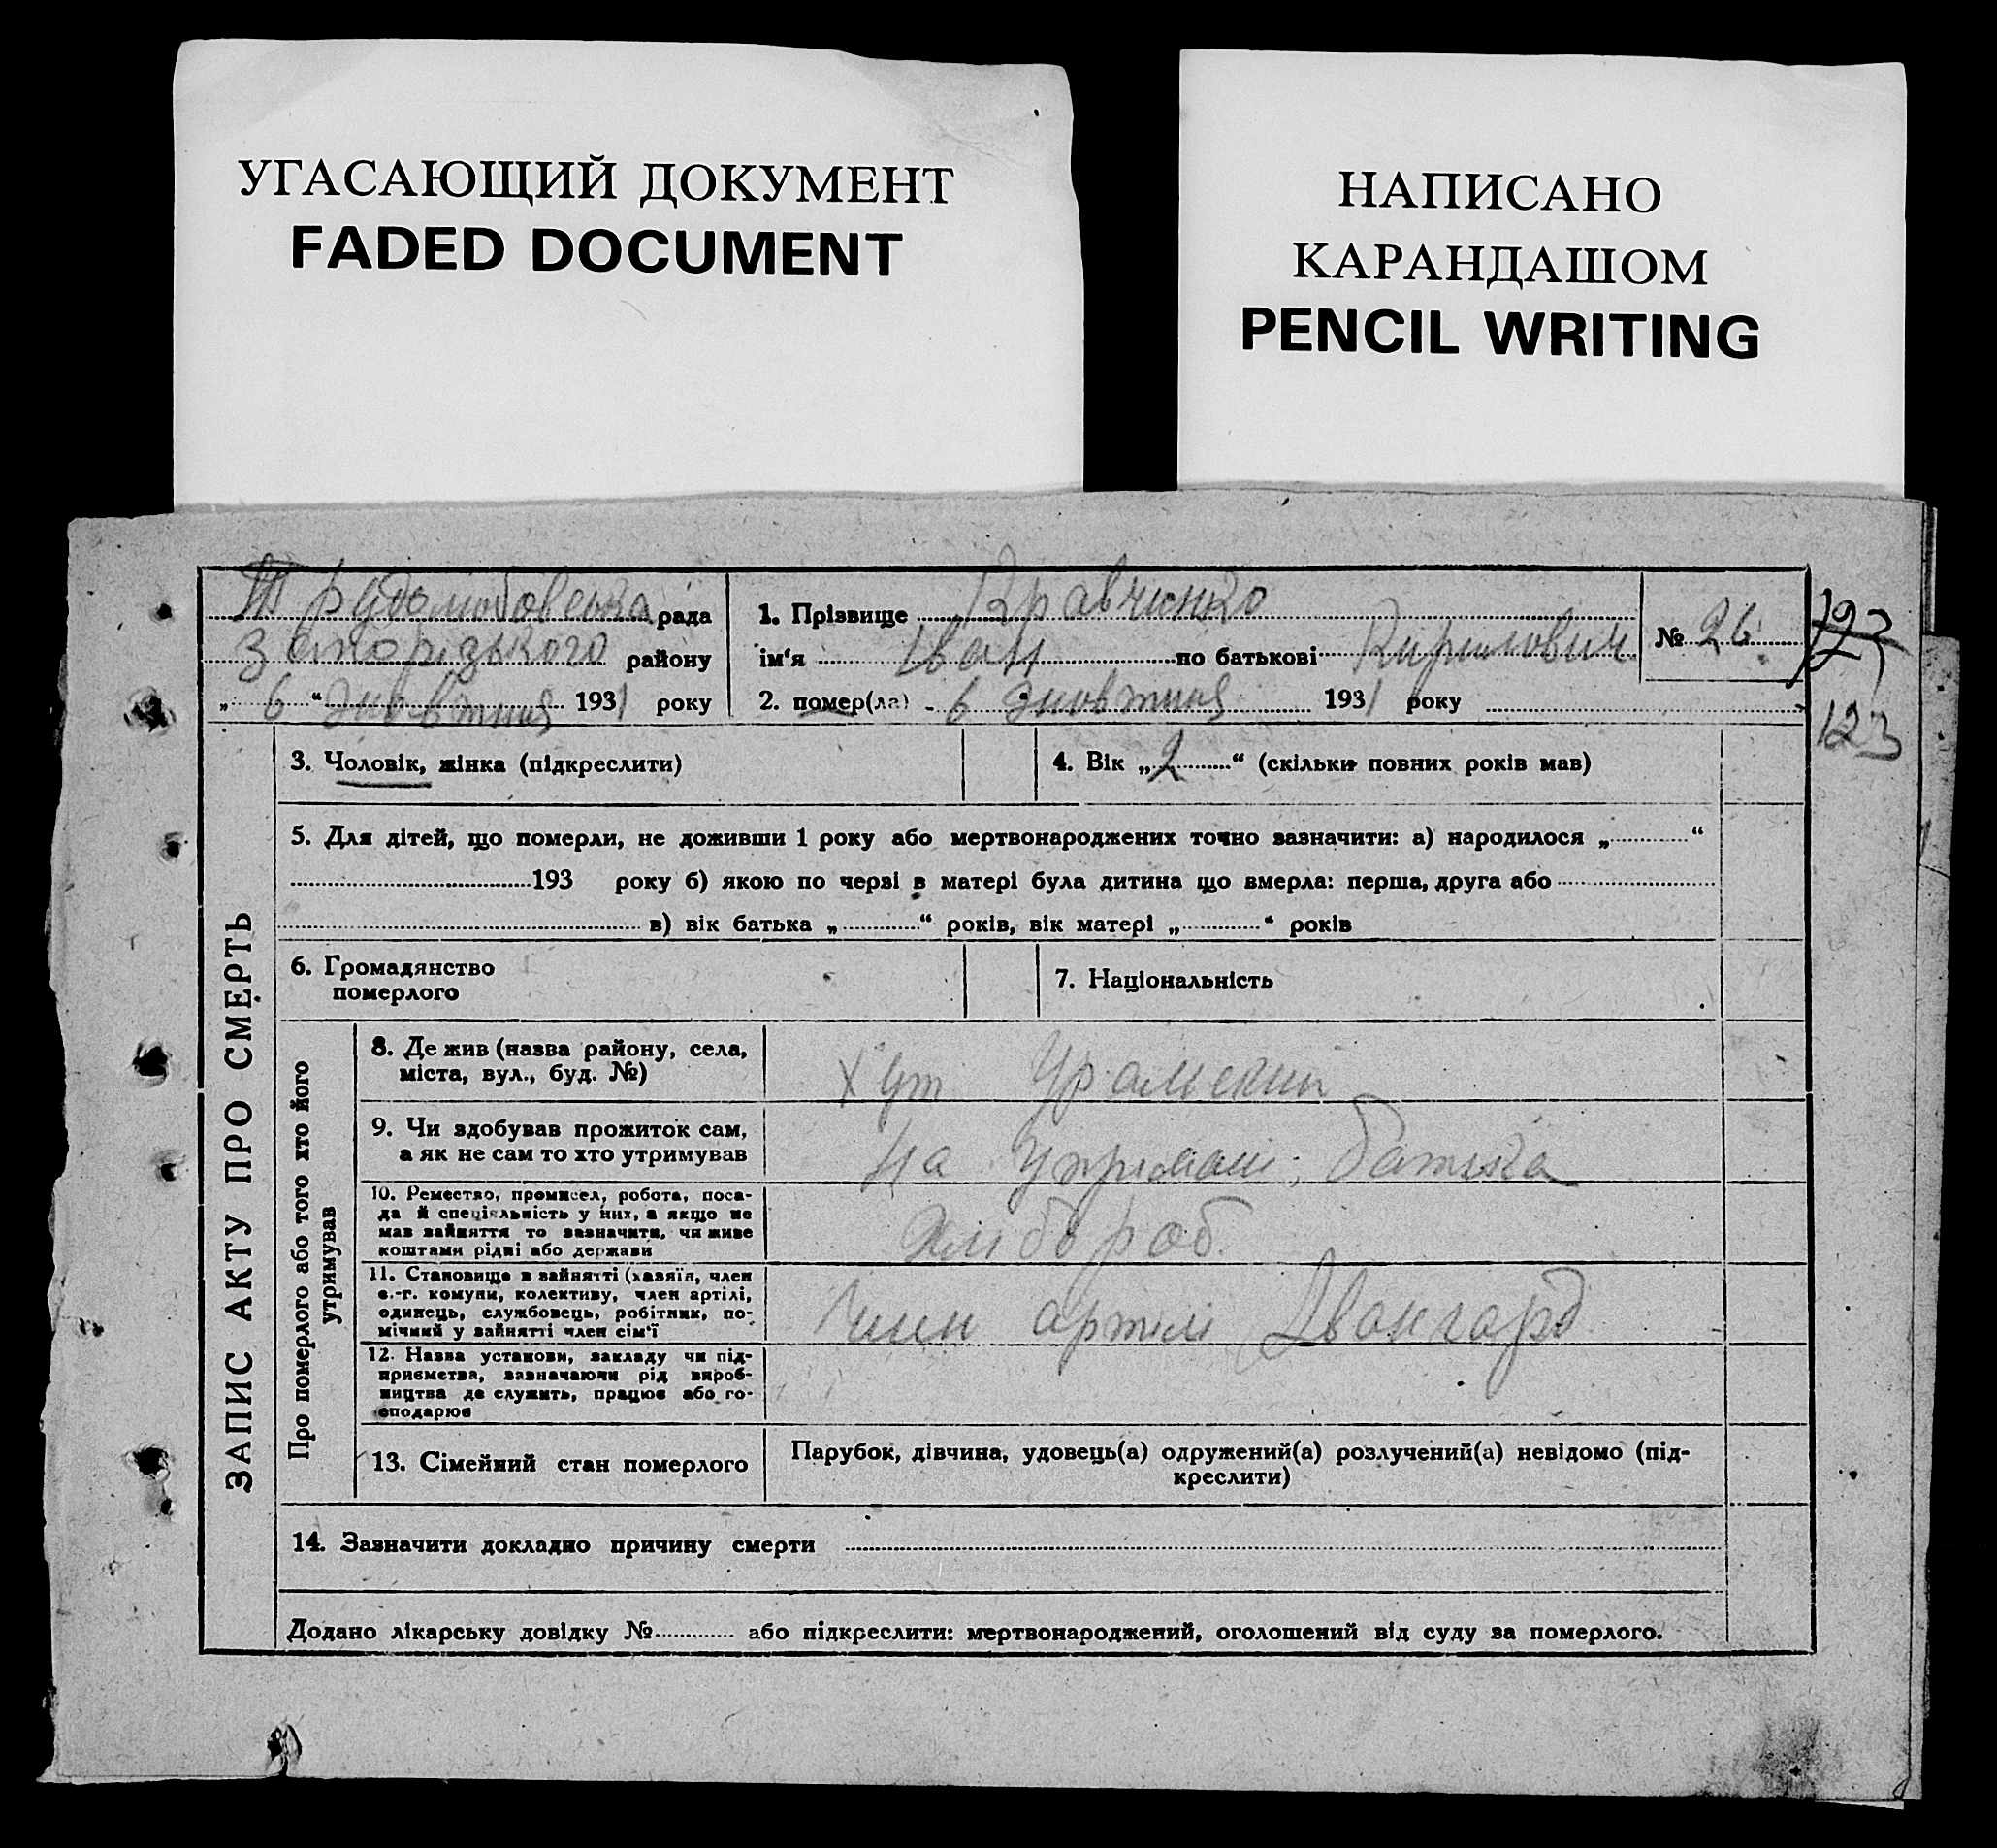 УГАСАЮЩИЙ ДОКУМЕНТ
FADED DOCUMENT
НАПИСАНО
КАРАНДАШОМ
PENCIL WRITING
Трудолюбовська рада
Запорізького району
„ 6 “ жовтня 1931 року
1. Прізвище Кравченко
ім‘я Іван по батькові Кирилович
2. помер(ла) 6 жовтня 1931 року
№ 26
123
123
ЗАПИС АКТУ ПРО СМЕРТЬ
3. Чоловік, жінка (підкреслити)
4. Вік „ 2 “ (скільки повних років мав)
5. Для дітей, що померли, не доживши 1 року або мертвонароджених точно зазначити: а) народилося „ “
193 року б) якою по черві в матері була дитина що вмерла: перша, друга або
в) вік батька „ “ років, вік матері „ “ років
6. Громадянство
померлого
7. Національність
Про померлого або того хто його
утримував
8. Де жив (назва району, села,
міста, вул., буд. №)
хут
9. Чи здобував прожиток сам,
а як не сам то хто утримував
На батька
10. Ремество, промисел, робота, поса-
да й спеціяльність у них, а якщо не
мав зайняття то зазначити, чи живе
коштами рідні або держави
хлібороб.
11. Становище в зайнятті (хазяїн, член
с.-г. комуни, колективу, член артілі,
одинець, службовець, робітник, по-
мічний у зайнятті член сім‘ї
Член артілі Авангард
12. Назва установи, закладу чи під-
приємства, зазначаючи рід вироб-
ництва де служить, працює або го-
сподарює
13. Сімейний стан померлого
Парубок, дівчина, удовець(а) одружений(а) розлучений(а) невідомо (під-
креслити)
14. Зазначити докладно причину смерти
Додано лікарську довідку № або підкреслити: мертвонароджений, оголошений від суду за померлого.